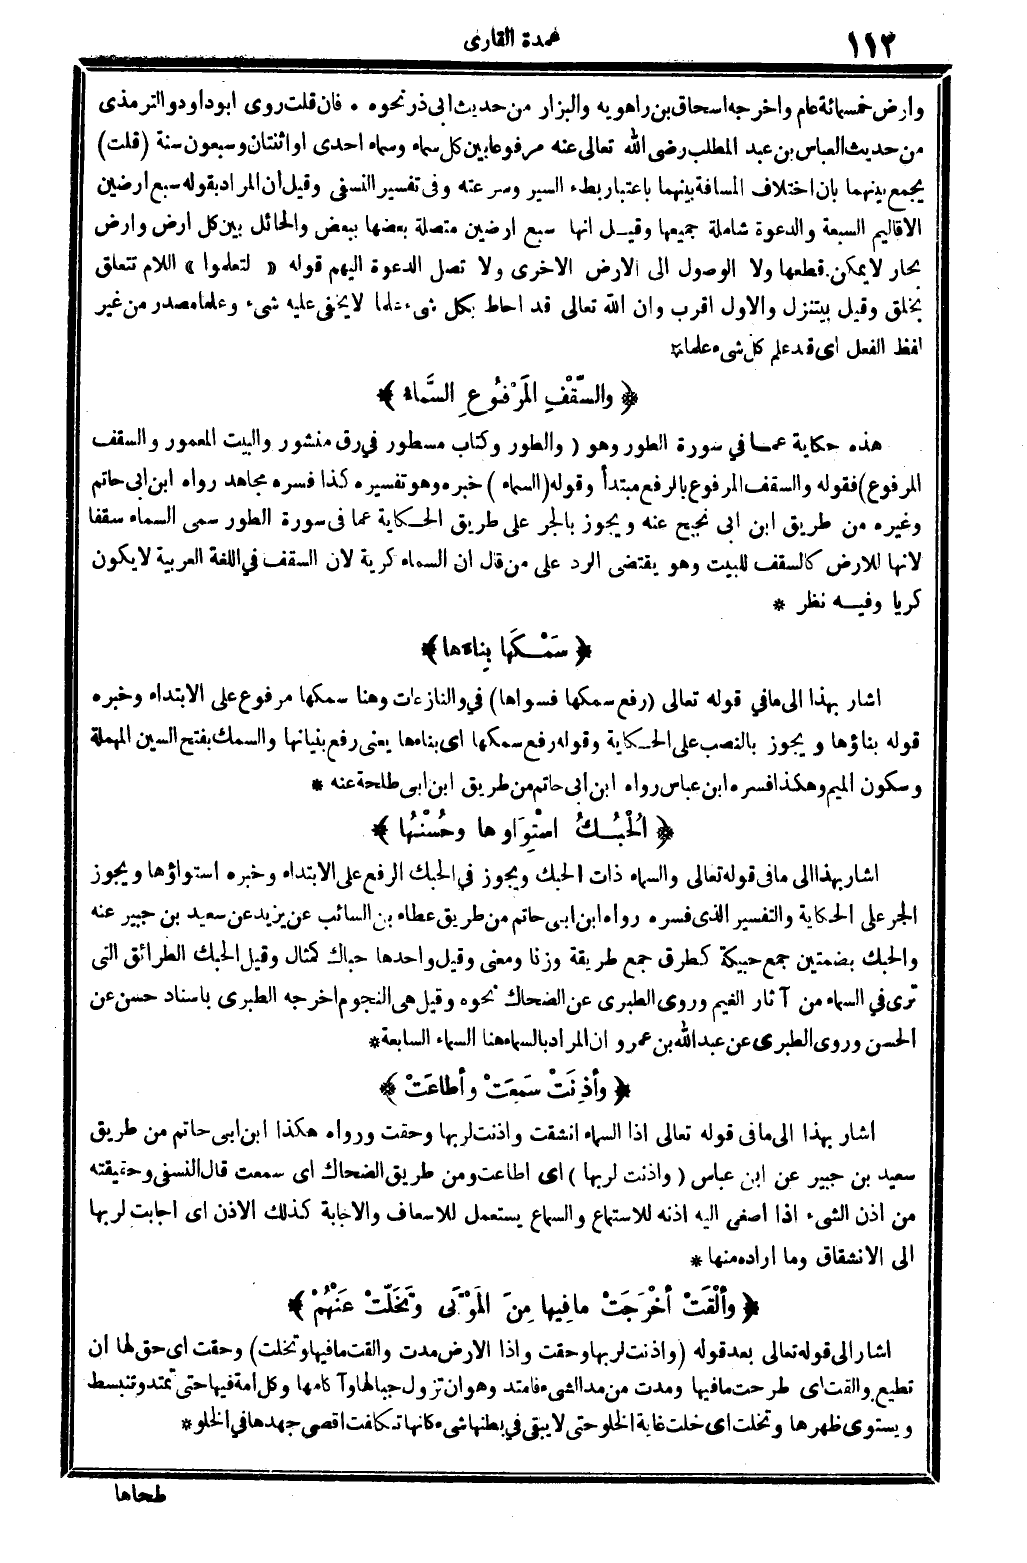 ١١٢
عمدة القارى
وارض خمسمائة عام واخرجه اسحاق بن راهويه والبزار من حديث ابى ذر نحوه • فان قلت روى ابو داود والترمذى
من حديث العباس بن عبد المطلب رضى الله تعالى عنه مرفوعا بين كل سماء وسماء احدى او اثنتان وسبعون سنة (قلت)
يجمع بينهما بان اختلاف المسافة بينهما باعتبار بطء السير وسرعته وفى تفسير النسفى وقيل أن المراد بقوله سبع ارضين
الاقاليم السبعة والدعوة شاملة جميعها وقيل انها سبع ارضين متصلة بعضها ببعض والحائل بين كل ارض وارض
بحار لا يمكن قطعها ولا الوصول الى الارض الاخرى ولا تصل الدعوة اليهم قوله « لتعلموا » اللام تتعلق
بخلق وقيل بيتنزل والاول اقرب وان الله تعالى قد احاط بكل شىء علما لا يخفى عليه شىء وعلما مصدر من غير
لفظ الفعل اى قد علم كل شىء علما *
﴿ والسَّقْفِ المَرْفُوعِ السَّماءُ ﴾
هذه حكاية عما في سورة الطور وهو ( والطور وكتاب مسطور في رق منشور والبيت المعمور والسقف
المرفوع) فقوله والسقف المرفوع بالرفع مبتدأ وقوله (السماء) خبره وهو تفسيره كذا فسره مجاهد رواه ابن ابى حاتم
وغيره من طريق ابن ابى نجيح عنه ويجوز بالجر على طريق الحكاية عما فى سورة الطور سمى السماء سقفا
لانها للارض كالسقف للبيت وهو يقتضى الرد على من قال ان السماء كرية لان السقف في اللغة العربية لا يكون
كريا وفيه نظر *
﴿ سَمْكَها بِناءَها ﴾
اشار بهذا الى مافي قوله تعالى (رفع سمكها فسواها) في والنازعات وهنا سمكها مرفوع على الابتداء وخبره
قوله بناؤها ويجوز بالنصب على الحكاية وقوله رفع سمكها اى بناءها يعنى رفع بنيانها والسمك بفتح السين المهملة
وسكون الميم وهكذا فسره ابن عباس رواه ابن أبى حاتم من طريق ابن ابى طلحة عنه *
﴿ الْحُبُكُ اسْتِوَاوها وحُسْنُها ﴾
اشار بهذا الى مافى قوله تعالى والسماء ذات الحبك ويجوز في الحبك الرفع على الابتداء وخبره استواؤها ويجوز
الجر على الحكاية والتفسير الذى فسره رواه ابن ابى حاتم من طريق عطاء بن السائب عن يزيد عن سعيد بن جبير عنه
والحبك بضمتين جمع حبيكة كطرق جمع طريقة وزنا ومعنى وقيل واحدها حباك كمثال وقيل الحبك الطرائق التى
ترى في السماء من آثار الغيم وروى الطبرى عن الضحاك نحوه وقيل هى النجوم اخرجه الطبرى باسناد حسن عن
الحسن وروى الطبرى عن عبد الله بن عمرو ان المراد بالسماء هنا السماء السابعة *
﴿ وأذِنَتْ سَمِعَتْ وأطاعَتْ ﴾
اشار بهذا الى مافى قوله تعالى اذا السماء انشقت واذنت لربها وحقت ورواه هكذا ابن ابى حاتم من طريق
سعيد بن جبير عن ابن عباس ( واذنت لربها ) اى اطاعت ومن طريق الضحاك اى سمعت قال النسفى وحقيقته
من اذن الشىء اذا أصغى اليه اذنه للاستماع والسماع يستعمل للاسعاف والاجابة كذلك الاذن اى اجابت لربها
الى الانشقاق وما اراده منها *
﴿ وألْقَتْ أخْرَجَتْ مافِيها مِنَ المَوْتَى وتَخَلَّتْ عَنْهُمْ ﴾
اشار الى قوله تعالى بعد قوله (واذنت لربها وحقت واذا الارض مدت والقت مافيها وتخلت) وحقت اى حق لها ان
تطيع والقت اى طرحت مافيها ومدت من مد الشىء فامتد وهو ان تزول جبالها وآكامها وكل امة فيها حتى تمتد وتنبسط
ويستوى ظهرها وتخلت اى خلت غاية الخلو حتى لا يبقى في بطنها شىء كانها تكلفت اقصى جهدها في الخلو *
طحاها